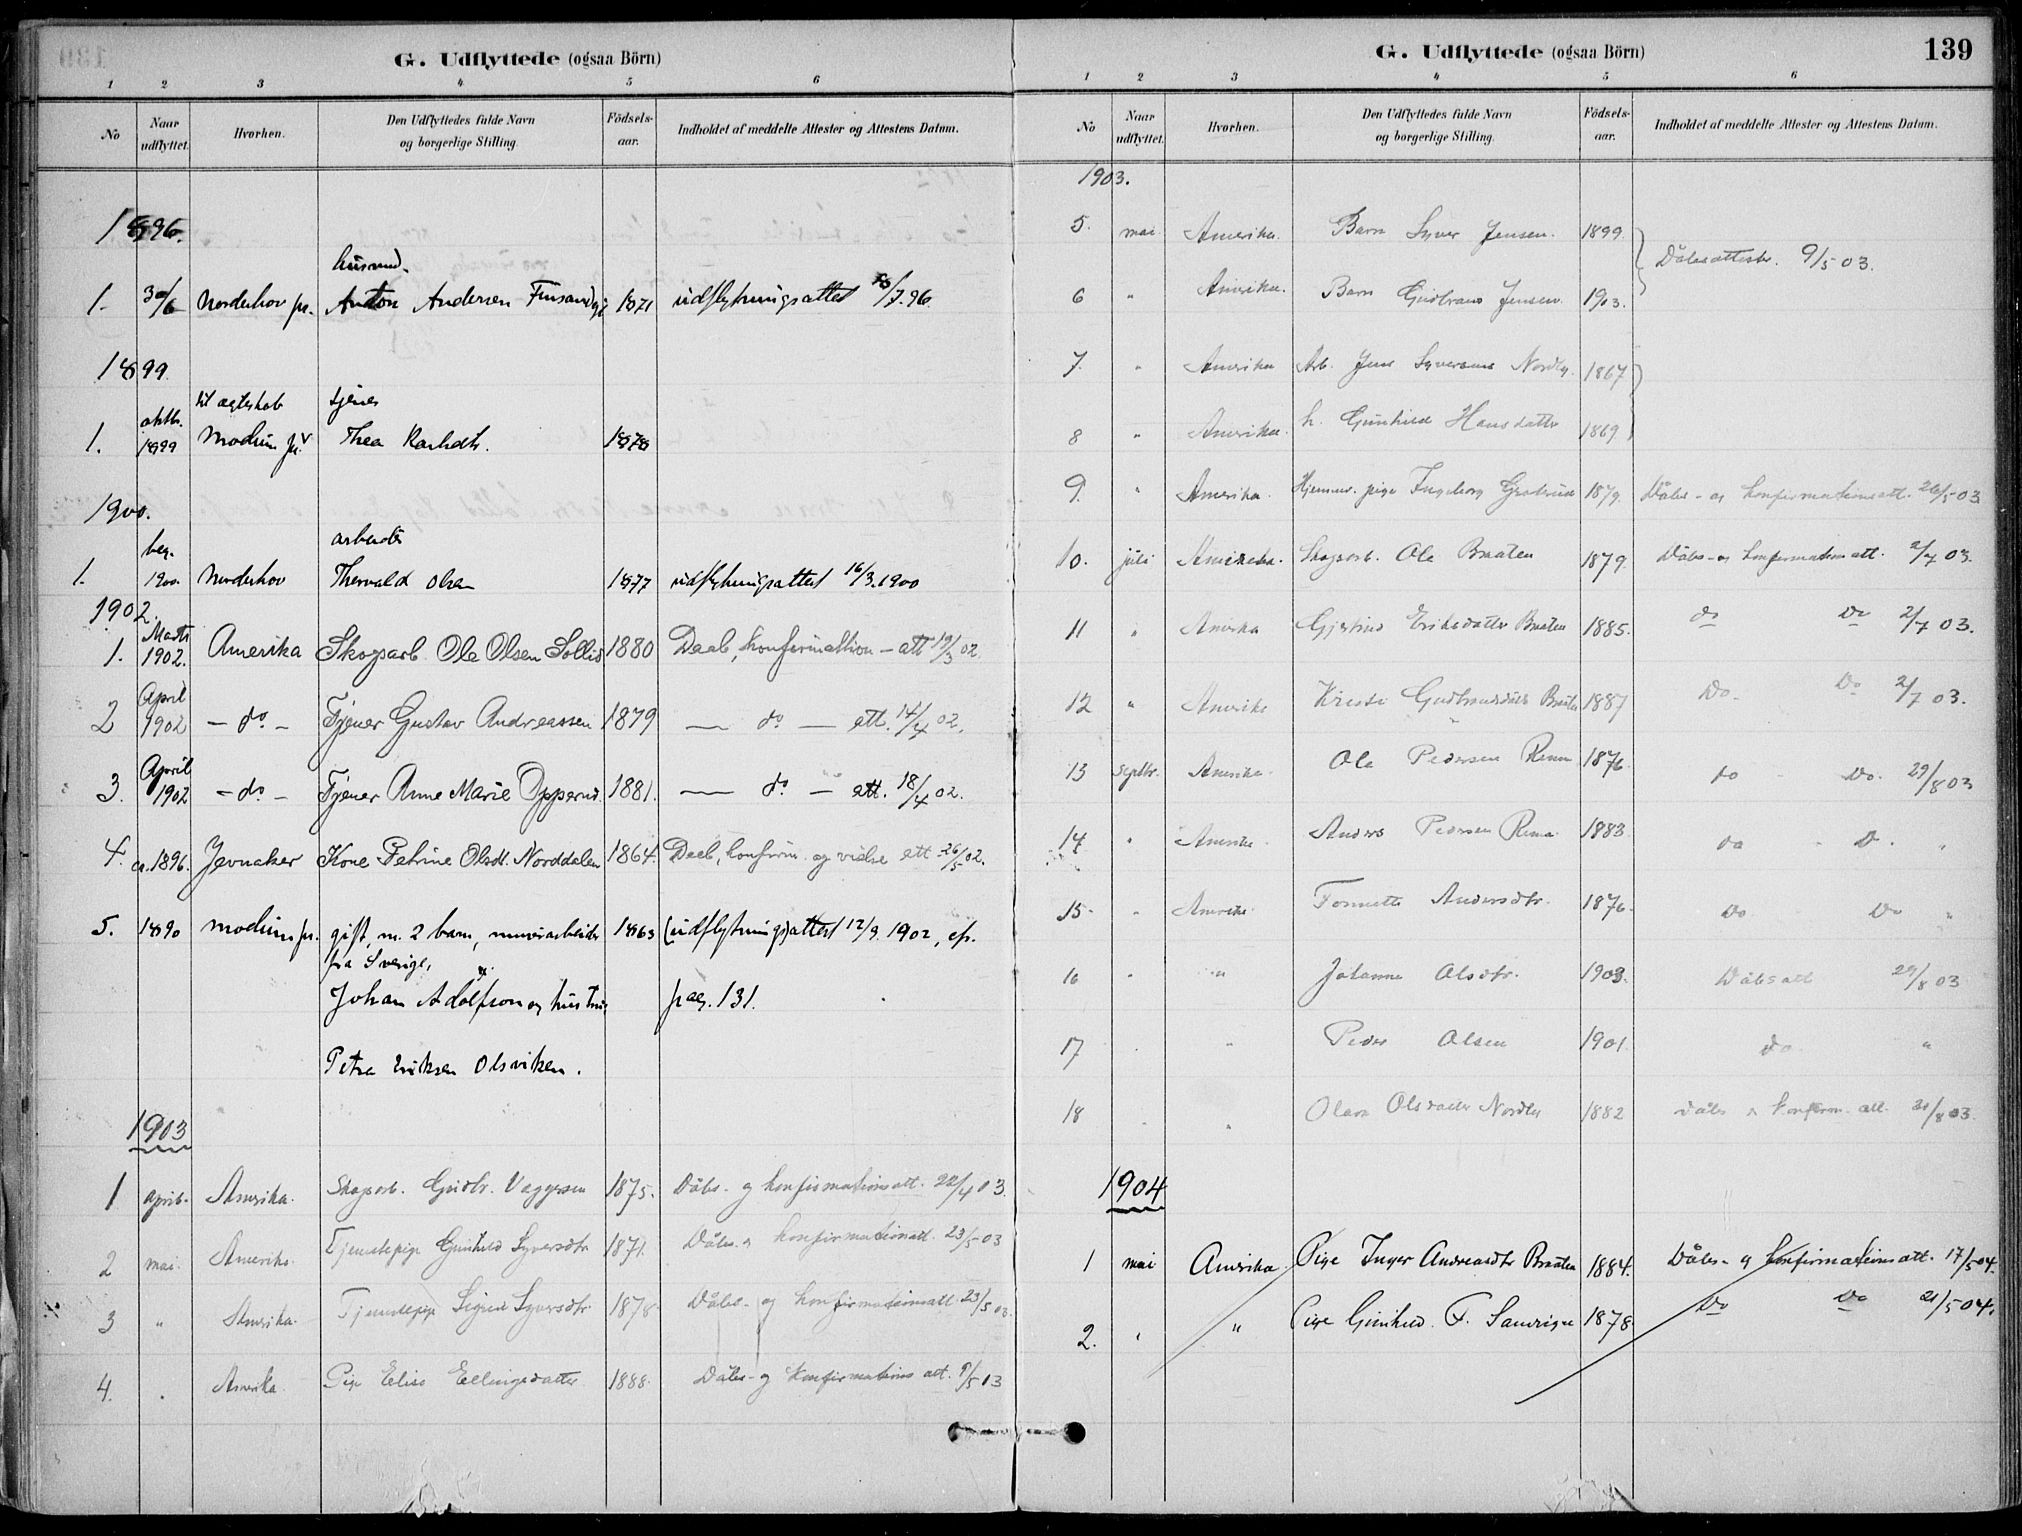 G. Udflyttede (ogsaa Börn)
1 2 3 4 5 6
No Naar udflyttet. Hvorhen. Den Udflyttedes fulde Navn og borgerlige Stilling. Födsels-aar. Indholdet af meddelte Attester og Attestens Datum.
1896.
husmd.
1. 30/6 Norderhov pr. Anton Andersen 1871 udflytningsattest /7.96
1899
oktbr. til ægteskab tjener
1. 1899 Modum pr. Thea Karlsdtr. 1878
1900.
beg. arbeider
1. 1900 Norderhov Thorvald Olsen 1877 udflytningsattest 16/3.1900
1902.
1. Marts 1902. Amerika Skogsarb. Ole Olsen Sollid 1880 Daab, konfirmation - att 19/3 02
2 April 1902 - do - Tjener Gustav Andreassen 1879 — do — att. 14/4 02.
3. April 1902 - do - Tjener Anne Marie Opperud 1881. — do — att. 18/4 02.
4. ca. 1896. Jevnaker Kone Petrine Olsdt. Norddalen 1864. Daab, konfirm. og vielse att 26/5 02.
5. 1890 Modum pr. gift, m. 2 barn, murerarbeider 1863 (udflytnings)attest 12/9 1902, cfr.
fra Sverige,
Johan Adolfson og hustru pag. 131.
Petra Eriksen Olsviken.
1903
1 april. Amerika. Skogsarb. Gudbr. Vaggesen 1875. Dåbs- og konfirmationsatt. 22/4 03.
2 mai. Amerika. Tjenestepige Gunhild Syversdtr 1871. Dåbs- og konfirmationsatt. 23/5 03
3 " Amerika. Tjenestepige Sigrid Syversdtr 1878. Dåbs- og konfirmationsatt 23/5 03.
4. . Amerika. Pige Elise Ellingsdatter 1888. Dåbs- og konfirmations att. 9/5 03
G. Udflyttede (ogsaa Börn) 139
1 2 3 4 5 6
No Naar udflyttet. Hvorhen. Den Udflyttedes fulde Navn og borgerlige Stilling. Födsels-aar. Indholdet af meddelte Attester og Attestens Datum.
1903.
5. mai Amerika. Barn Syver Jensen. 1899. Dåbsattester. 9/5 03.
6 " Amerika. Barn Gudbrand Jensen 1903.
7. " Amerika Arb. Jens Syversens Nordby. 1867
8 " Amerika. h. Gunhild Hansdatter 1869
9. " Amerika. Hjemmev. pige Ingeborg 1879. Dåbs- og konfirmationsatt. 26/5 03
10. juli Amerika. Skogsarb. Ole Braaten 1879. Dåbs- og konfirmations att. 2/7 03.
11 " Amerika Gjertrud Eriksdatter Braaten 1885. do Do 2/7 03.
12 " Amerika Kristi Gudbrandsdatter Braaten 1887 Do - Do 2/7 03.
13 septbr. Amerika. Ole Pedersen 1876. do - Do. 29/8 03
14 " Amerika. Anders Pedersen 1883 do - D. "
15. " Amerika Andersdtr. 1876. Do Do "
16 " " Johanne Olsdtr. 1903. Dåbsatt 29/8 03
17 . " Peder Olsen 1901. do. "
18 . " Olava Olsdatter Nordby 1882 Dåbs & konfirm. att. /8 03.
1904
1 mai Amerika. Pige Inger Andreasdtr Braaten 1884. Dåbs- og konfirmationsatt. 17/5 04.
2. " " Pige Gunhild F. 1878 Do Do 21/5 04.